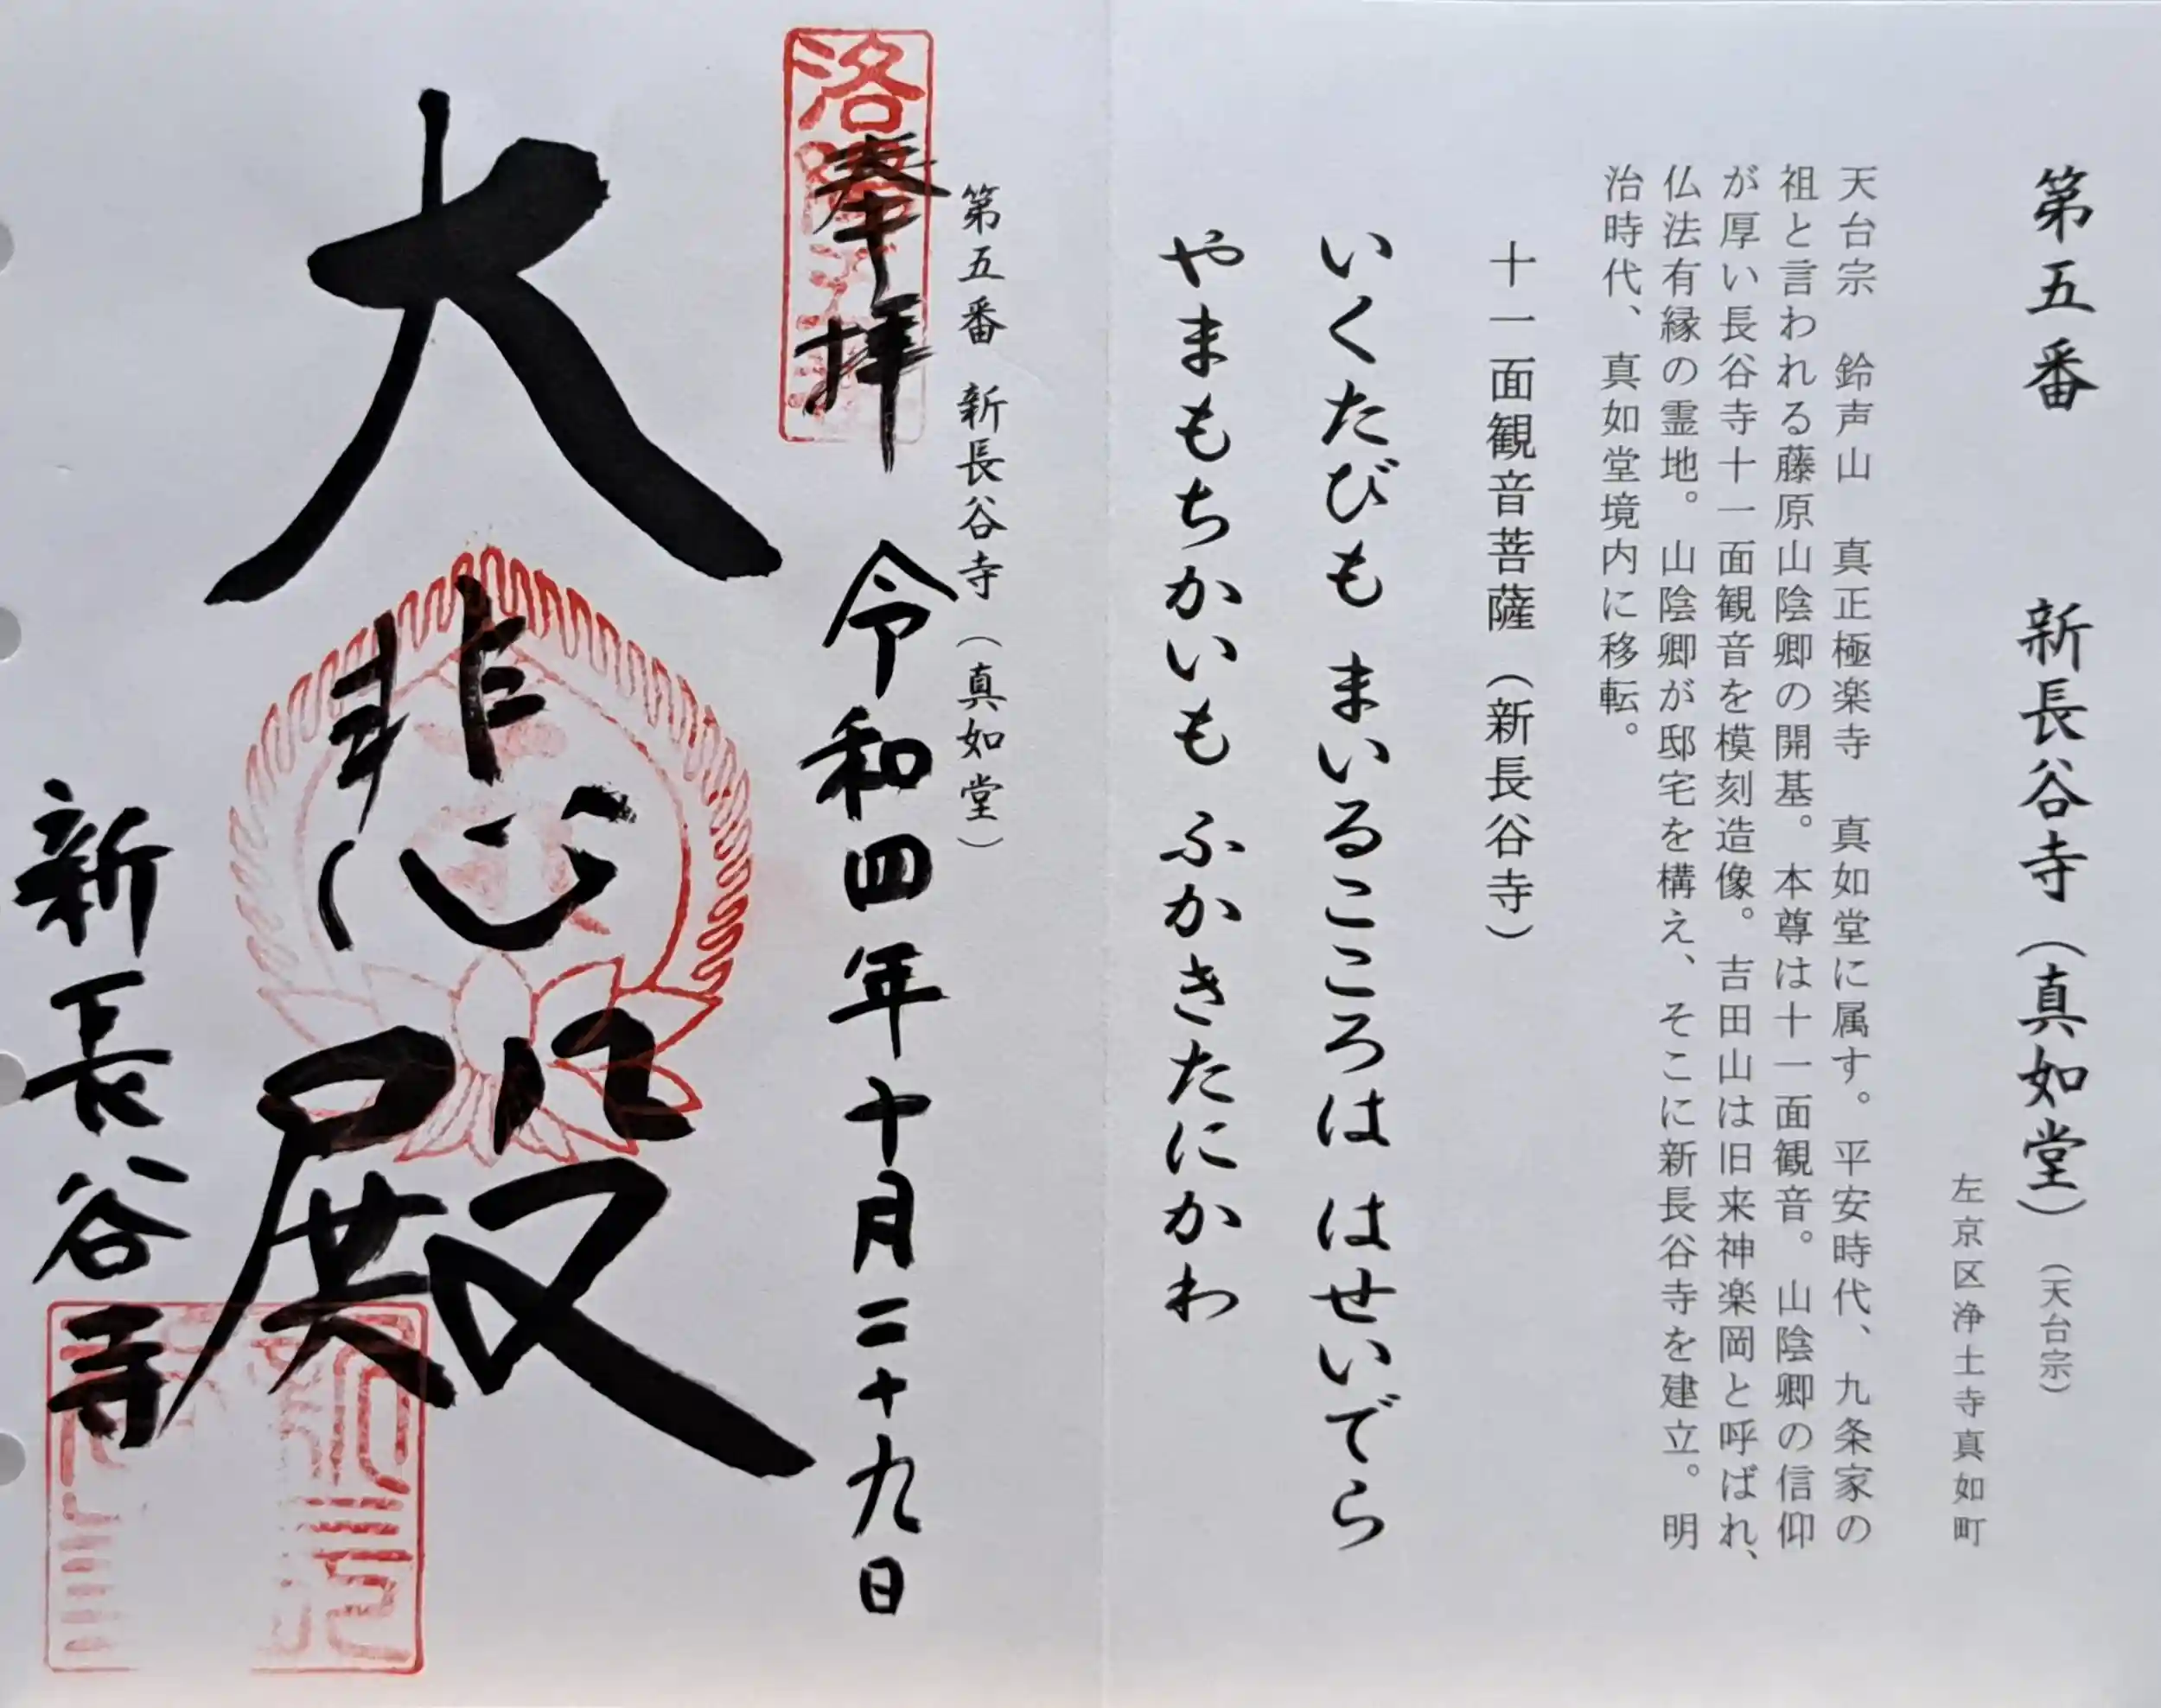 第五番　新長谷寺（真如堂）（天台宗）
左京区浄土寺真如町
天台宗　鈴声山　真正極楽寺　真如堂に属す。平安時代、九条家の
祖と言われる藤原山陰卿の開基。本尊は十一面観音。山陰卿の信仰
が厚い長谷寺十一面観音を模刻造像。吉田山は旧来神楽岡と呼ばれ、
仏法有縁の霊地。山陰卿が邸宅を構え、そこに新長谷寺を建立。明
治時代、真如堂境内に移転。
十一面観音菩薩（新長谷寺）
いくたびも まいるこころは はせいでら
やまもちかいも ふかきたにかわ
第五番　新長谷寺（真如堂）
奉拝　令和四年十月二十九日
大悲殿
新長谷寺